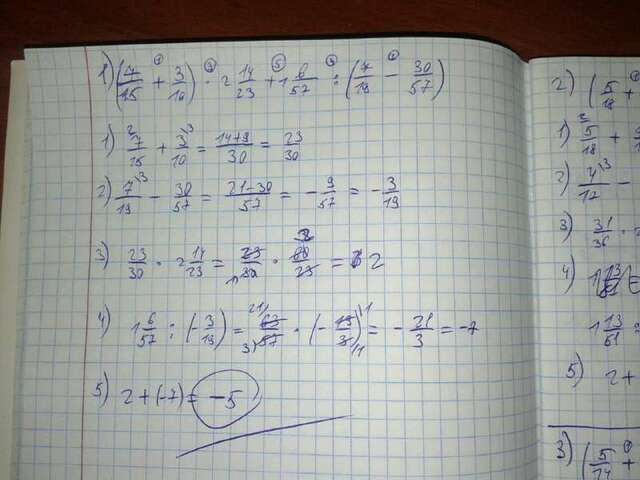 1) (7/15 + 3/10) · 2 14/23 + 1 6/57 : (7/19 − 30/57)
1) 7/15 + 3/10 = 14+9/30 = 23/30
2) 7/19 − 30/57 = 21−30/57 = −9/57 = −3/19
3) 23/30 · 2 14/23 = 23/30 · 60/23 = 2
4) 1 6/57 : (−3/19) = 63/57 · (−19/3) = −21/3 = −7
5) 2 + (−7) = −5
2) (5/18 +
1) 5/18 +
2) 4/12 −
3) 31/36 ·
4)
1 13/61 =
5) 2 +
3) (5/14 +